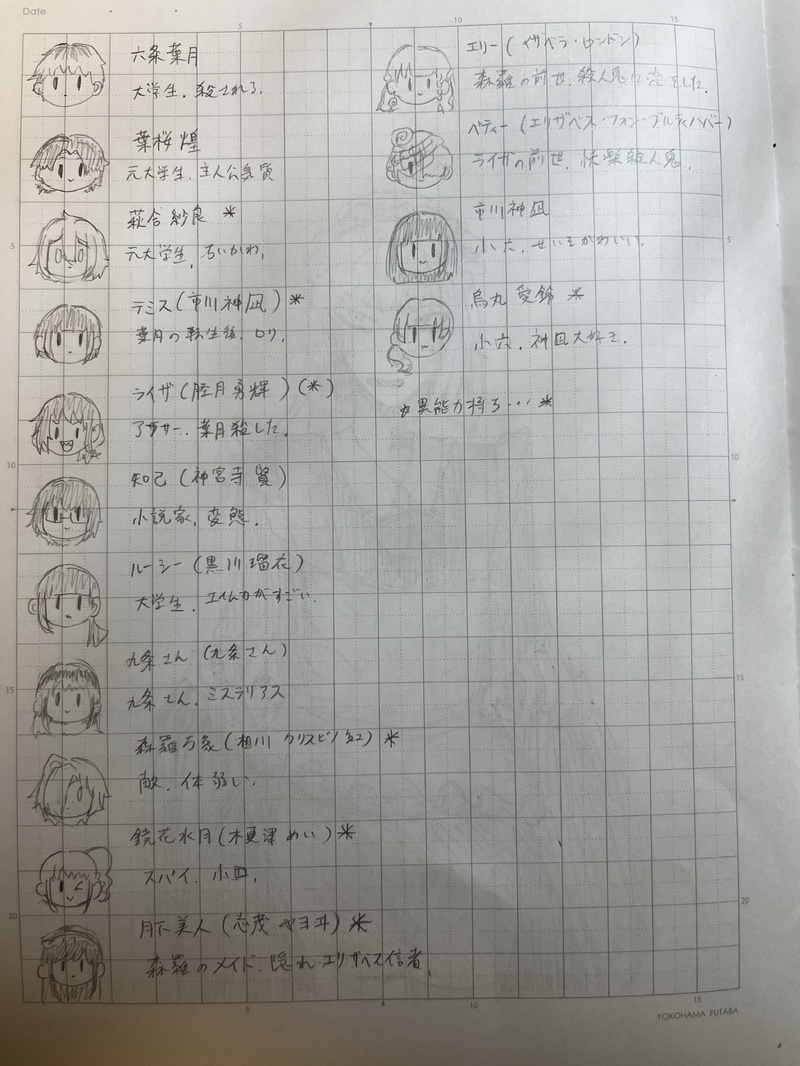 Date
5
10
15
六条葉月
大学生. 殺される.
葉桜 煌
元大学生. 主人公気質
萩合紗良 *
元大学生.
テミス(市川神凪) *
葉月の転生後. ロリ.
ライザ(睦月勇輝) (*)
アサシン. 葉月殺した.
知己(神宮寺 賢)
小説家. 変態.
ルーシー(黒川瑠衣)
大学生. エイム力がすごい.
九条さん (九条さん)
九条さん. ミステリアス
森羅万象(相川 クリスピノ 紅) *
敵. 体弱い.
鏡花水月(木更津 めい) *
スパイ. 小四.
月下美人(志茂 ヤヨヰ) *
森羅のメイド. 隠れエリザベス信者.
エリー(イザベラ・ロンドン)
森羅の前世. 殺人鬼に恋をした.
ベティー(エリザベス・フォン・ブルティノバー)
ライザの前世. 快楽殺人鬼.
市川神凪
小六. せいそかわいい.
烏丸 愛鈴 *
小六. 神凪大好き.
異能力持ち… *
5
10
15
20
5
10
15
20
5
10
15
YOKOHAMA FUTABA